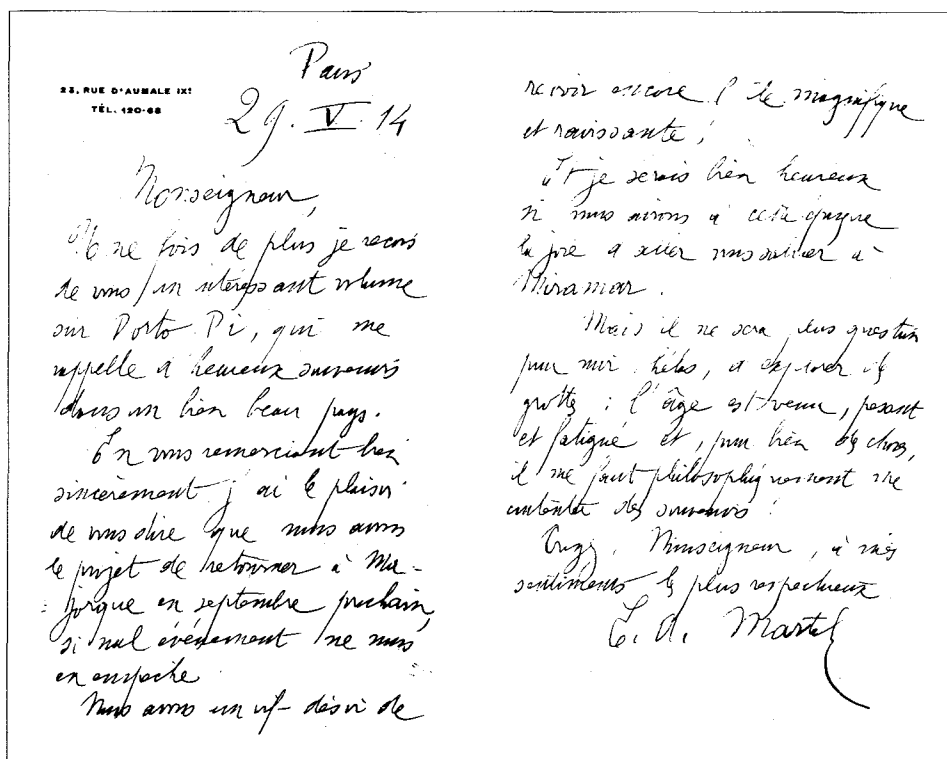 Paris
23, RUE D'AUMALE IXe
TÉL. 120-68
29. V. 14
Monseigneur,
Une fois de plus je reçois
de vous un intéressant volume
sur Porto Pi, qui me
rappelle d'heureux souvenirs
dans un bien beau pays.
En vous remerciant bien
sincèrement j'ai le plaisir
de vous dire que nous avons
le projet de retourner à Ma-
jorque en septembre prochain,
si nul événement ne nous
en empêche
Nous avons un vif désir de
revoir encore l'île magnifique
et ravissante!
Et je serais bien heureux
si nous avions à cette époque
la joie d'aller vous saluer à
Miramar.
Mais il ne sera plus question
pour moi hélas, d'explorer des
grottes: l'âge est venu, pesant
et fatigué et, pour bien des choses,
il me faut philosophiquement me
contenter des souvenirs!
Monseigneur, à mes
sentiments les plus respectueux
E. A. Martel